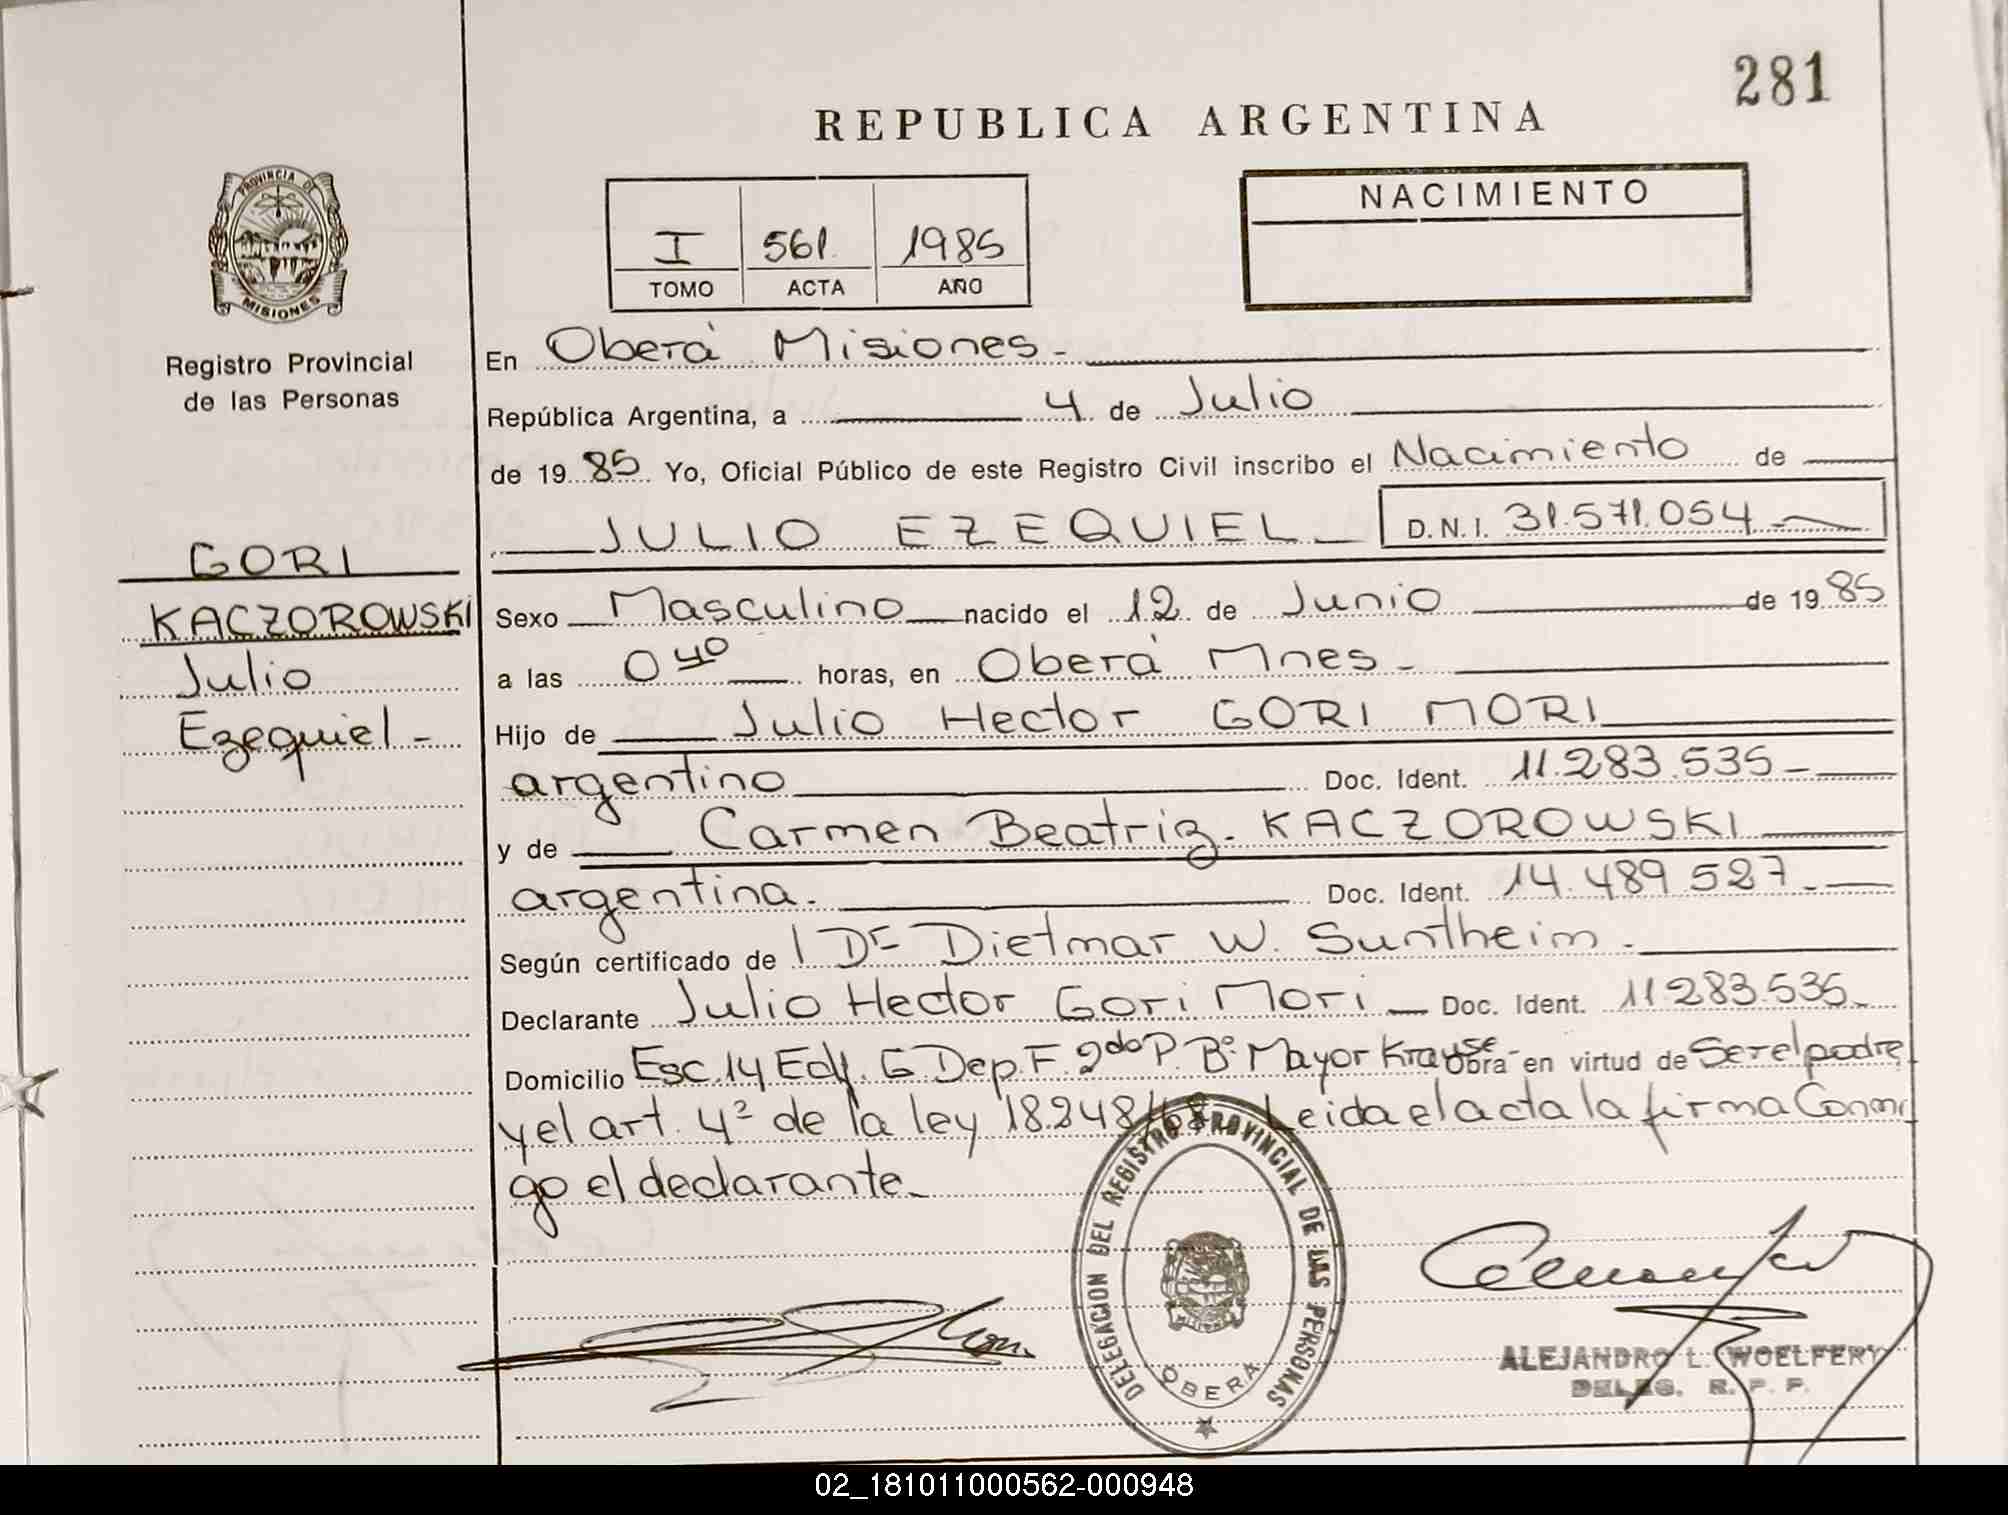 281
REPUBLICA ARGENTINA
PROVINCIA DE
MISIONES
Registro Provincial
de las Personas
I 561 1985
TOMO ACTA AÑO
NACIMIENTO
En Oberá Misiones.-
República Argentina, a 4 de Julio
de 19 85 Yo, Oficial Público de este Registro Civil inscribo el Nacimiento de
JULIO EZEQUIEL D.N.I. 31.571.054
GORI
KACZOROWSKI
Julio
Ezequiel-
Sexo Masculino nacido el 12 de Junio de 19 85
a las 0 40 horas, en Oberá Mnes-
Hijo de Julio Hector GORI MORI
argentino Doc. Ident. 11.283.535-
y de Carmen Beatriz. KACZOROWSKI
argentina. Doc. Ident. 14.489.527.-
Según certificado de l Dr Dietmar W. Suntheim.-
Declarante Julio Hector Gori Mori Doc. Ident. 11.283.535-
Domicilio Esc. 14 Edf. G Dep. F. 2do P. Bº Mayor Krause Obra en virtud de Ser el padre
y el art. 4º de la ley 18.248/68 Leida el acta la firma Conmi
go el declarante-
DELEGACION DEL REGISTRO PROVINCIAL DE LAS PERSONAS
OBERA
ALEJANDRO L. WOELFERT
DELEG. R. P. P.
02_181011000562-000948